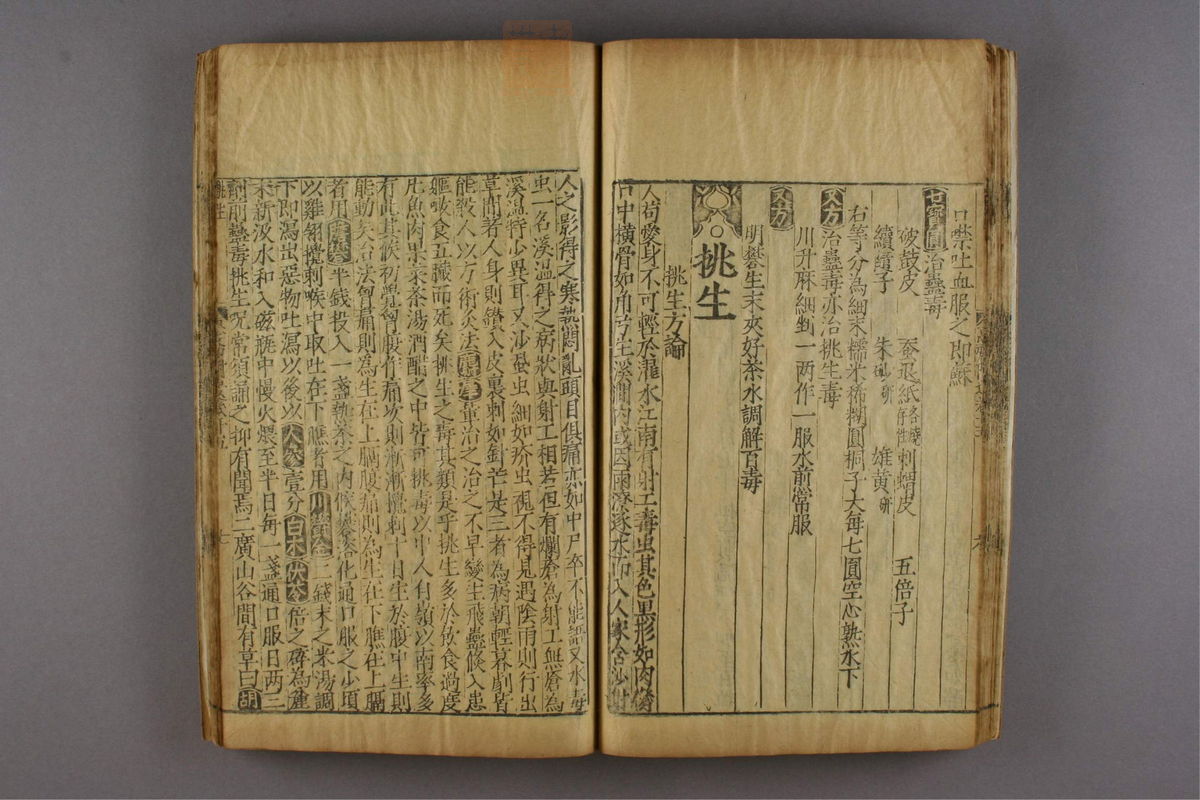 口噤吐血服之即蘇
七寶圓治蠱毒
破鼓皮 蚕退紙各燒存性 刺蝟皮 五倍子
續隨子 朱砂研 雄黃研
右等分為細末糯米稀糊圓桐子大每七圓空心熟水下
又方治蠱毒亦治挑生毒
川升麻細剉一两作一服水煎常服
又方
明礬生末夾好茶水調解百毒
挑生
挑生方論
人苟愛身不可輕於灌水江南有射工毒虫其色黑形如肉
口中橫骨如角弓生溪澗內或因雨潦逐水而入人家含沙射
人之影得之寒熱悶亂頭目俱痛亦如中尸卒不能語又水毒
虫一名溪溫得之病狀與射工相若但有爛瘡為射工無瘡為
溪溫特少異耳又沙虱虫細如疥虫視不得見遇陰雨則行出
草間著人身則鑽入皮裏刺如針芒是三者為病朝輕暮劇皆
能殺人以方術灸法 治之治之不早變生飛蠱倏入患
軀啖食五臟而死矣挑生之毒其類是乎挑生多於飲食過度
凡魚肉果菜茶湯酒醋之中皆可挑毒以中人有嶺以南率多
有此其候初覺胷腹作痛次則漸漸攪刺十日生於腹中生則
能動矣治法胷痛則為生在上膈腹痛則為生在下膲在上膈
者用膽礬半錢投入一盞熱茶之內候礬溶化通口服之少頃
以雞翎攪刺喉中取吐在下膲者用川鬱金二錢末之米湯調
下即瀉出惡物吐瀉以後以人參壹分白朮伏苓倍之碎為麄
末新汲水和入磁瓶中慢火煨至半日每一盞通口服日两三
劑前蠱毒挑生呪常須誦之抑有聞焉二廣山谷間有草曰胡